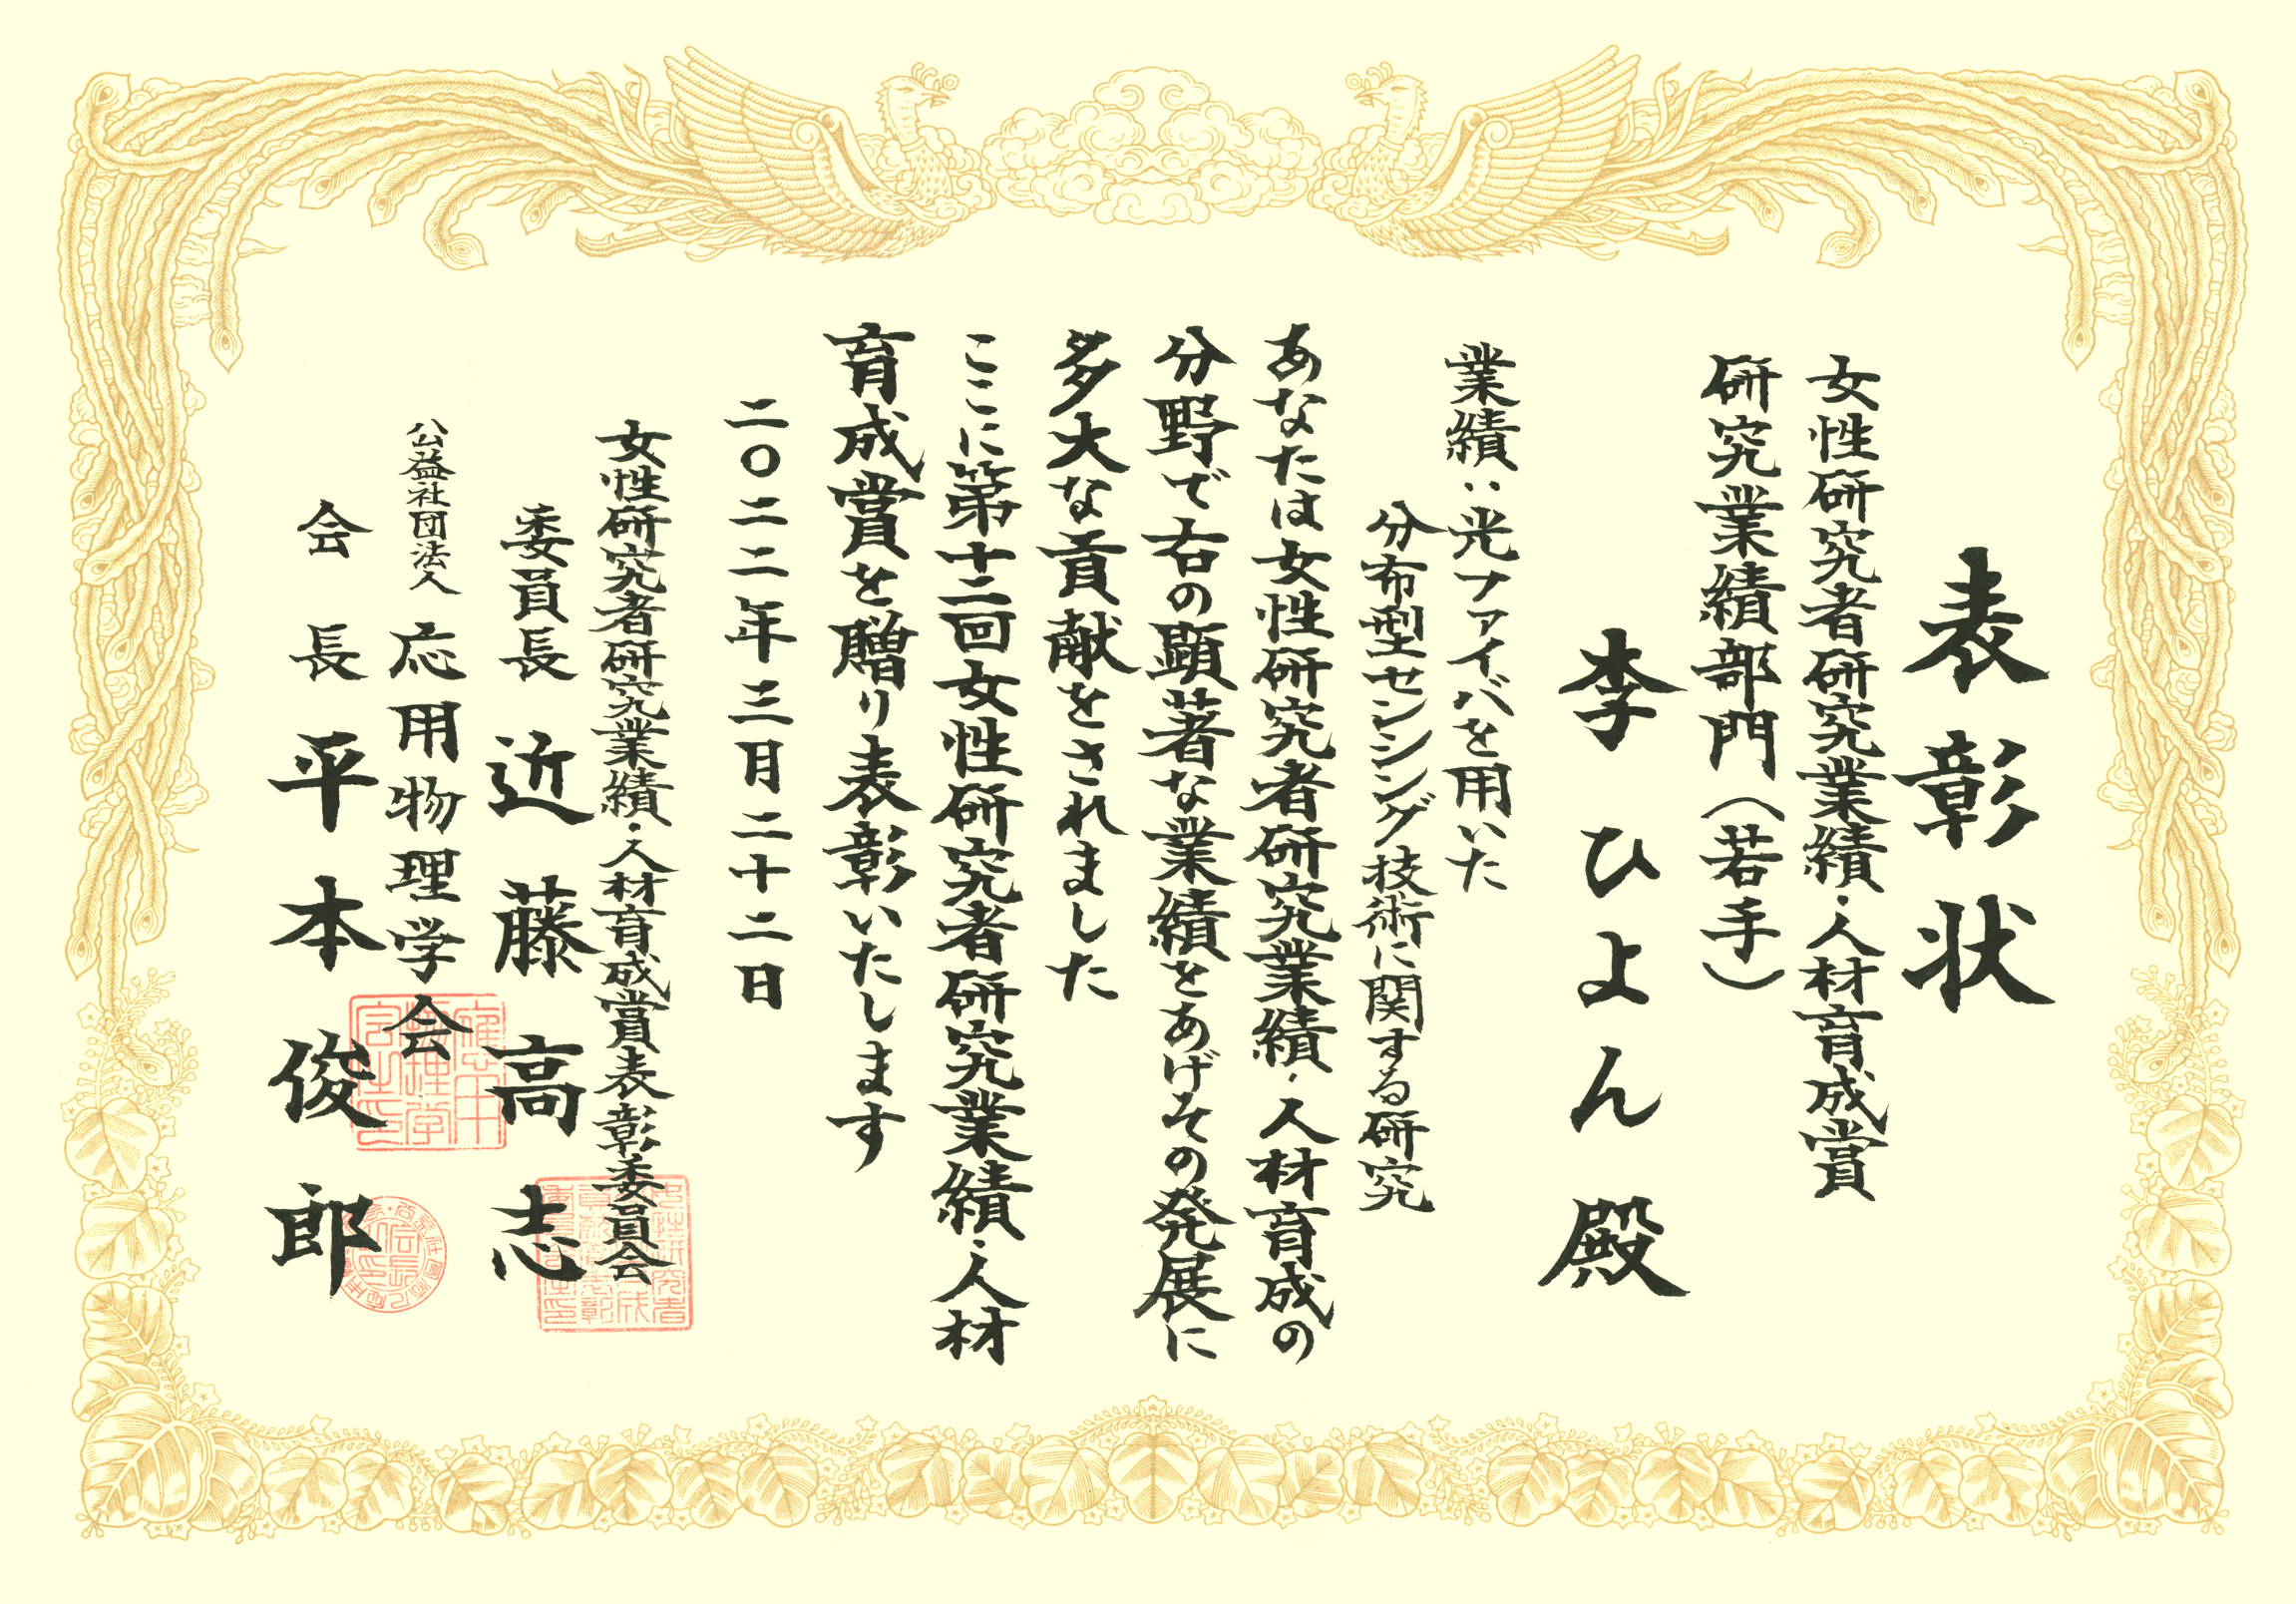 表彰状
女性研究者研究業績・人材育成賞
研究業績部門（若手）
李ひよん殿
業績：光ファイバを用いた
分布型センシング技術に関する研究
あなたは女性研究者研究業績・人材育成の
分野で右の顕著な業績をあげその発展に
多大な貢献をされました
ここに第十二回女性研究者研究業績・人材
育成賞を贈り表彰いたします
二〇二二年三月二十二日
女性研究者研究業績・人材育成賞表彰委員会
委員長 近藤高志
公益社団法人 応用物理学会
会長 平本俊郎